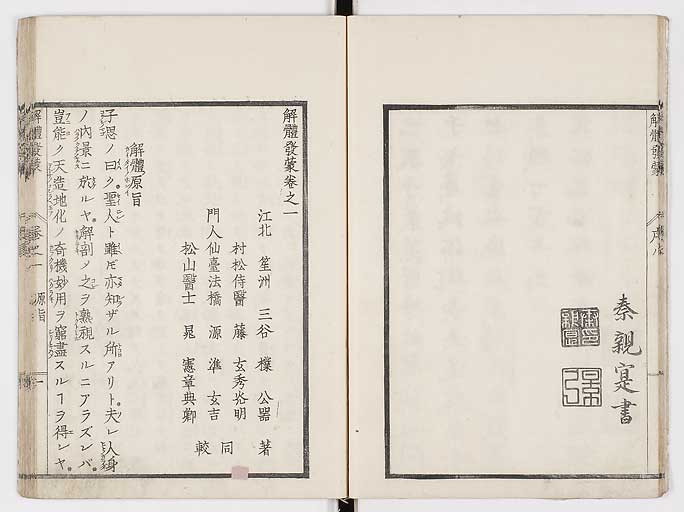 解體發蒙
序八
秦親寔書
解體發蒙卷之一
江北 笙洲 三谷 樸 公器 著
村松侍醫 藤 玄秀兆明
門人仙臺法橋 源 準 玄吉 同較
松山醫士 晁 憲章典卿
解體原旨
子思ノ曰ク聖人ト雖ドモ亦知ザル所アリト夫レ人身
ノ內景ニ於ルヤ解剖メ之ヲ熟視スルニアラズンバ
豈能ク天造地化ノ奇機妙用ヲ窮盡スルヿヲ得ンヤ
解體發蒙
卷之一
源旨
一